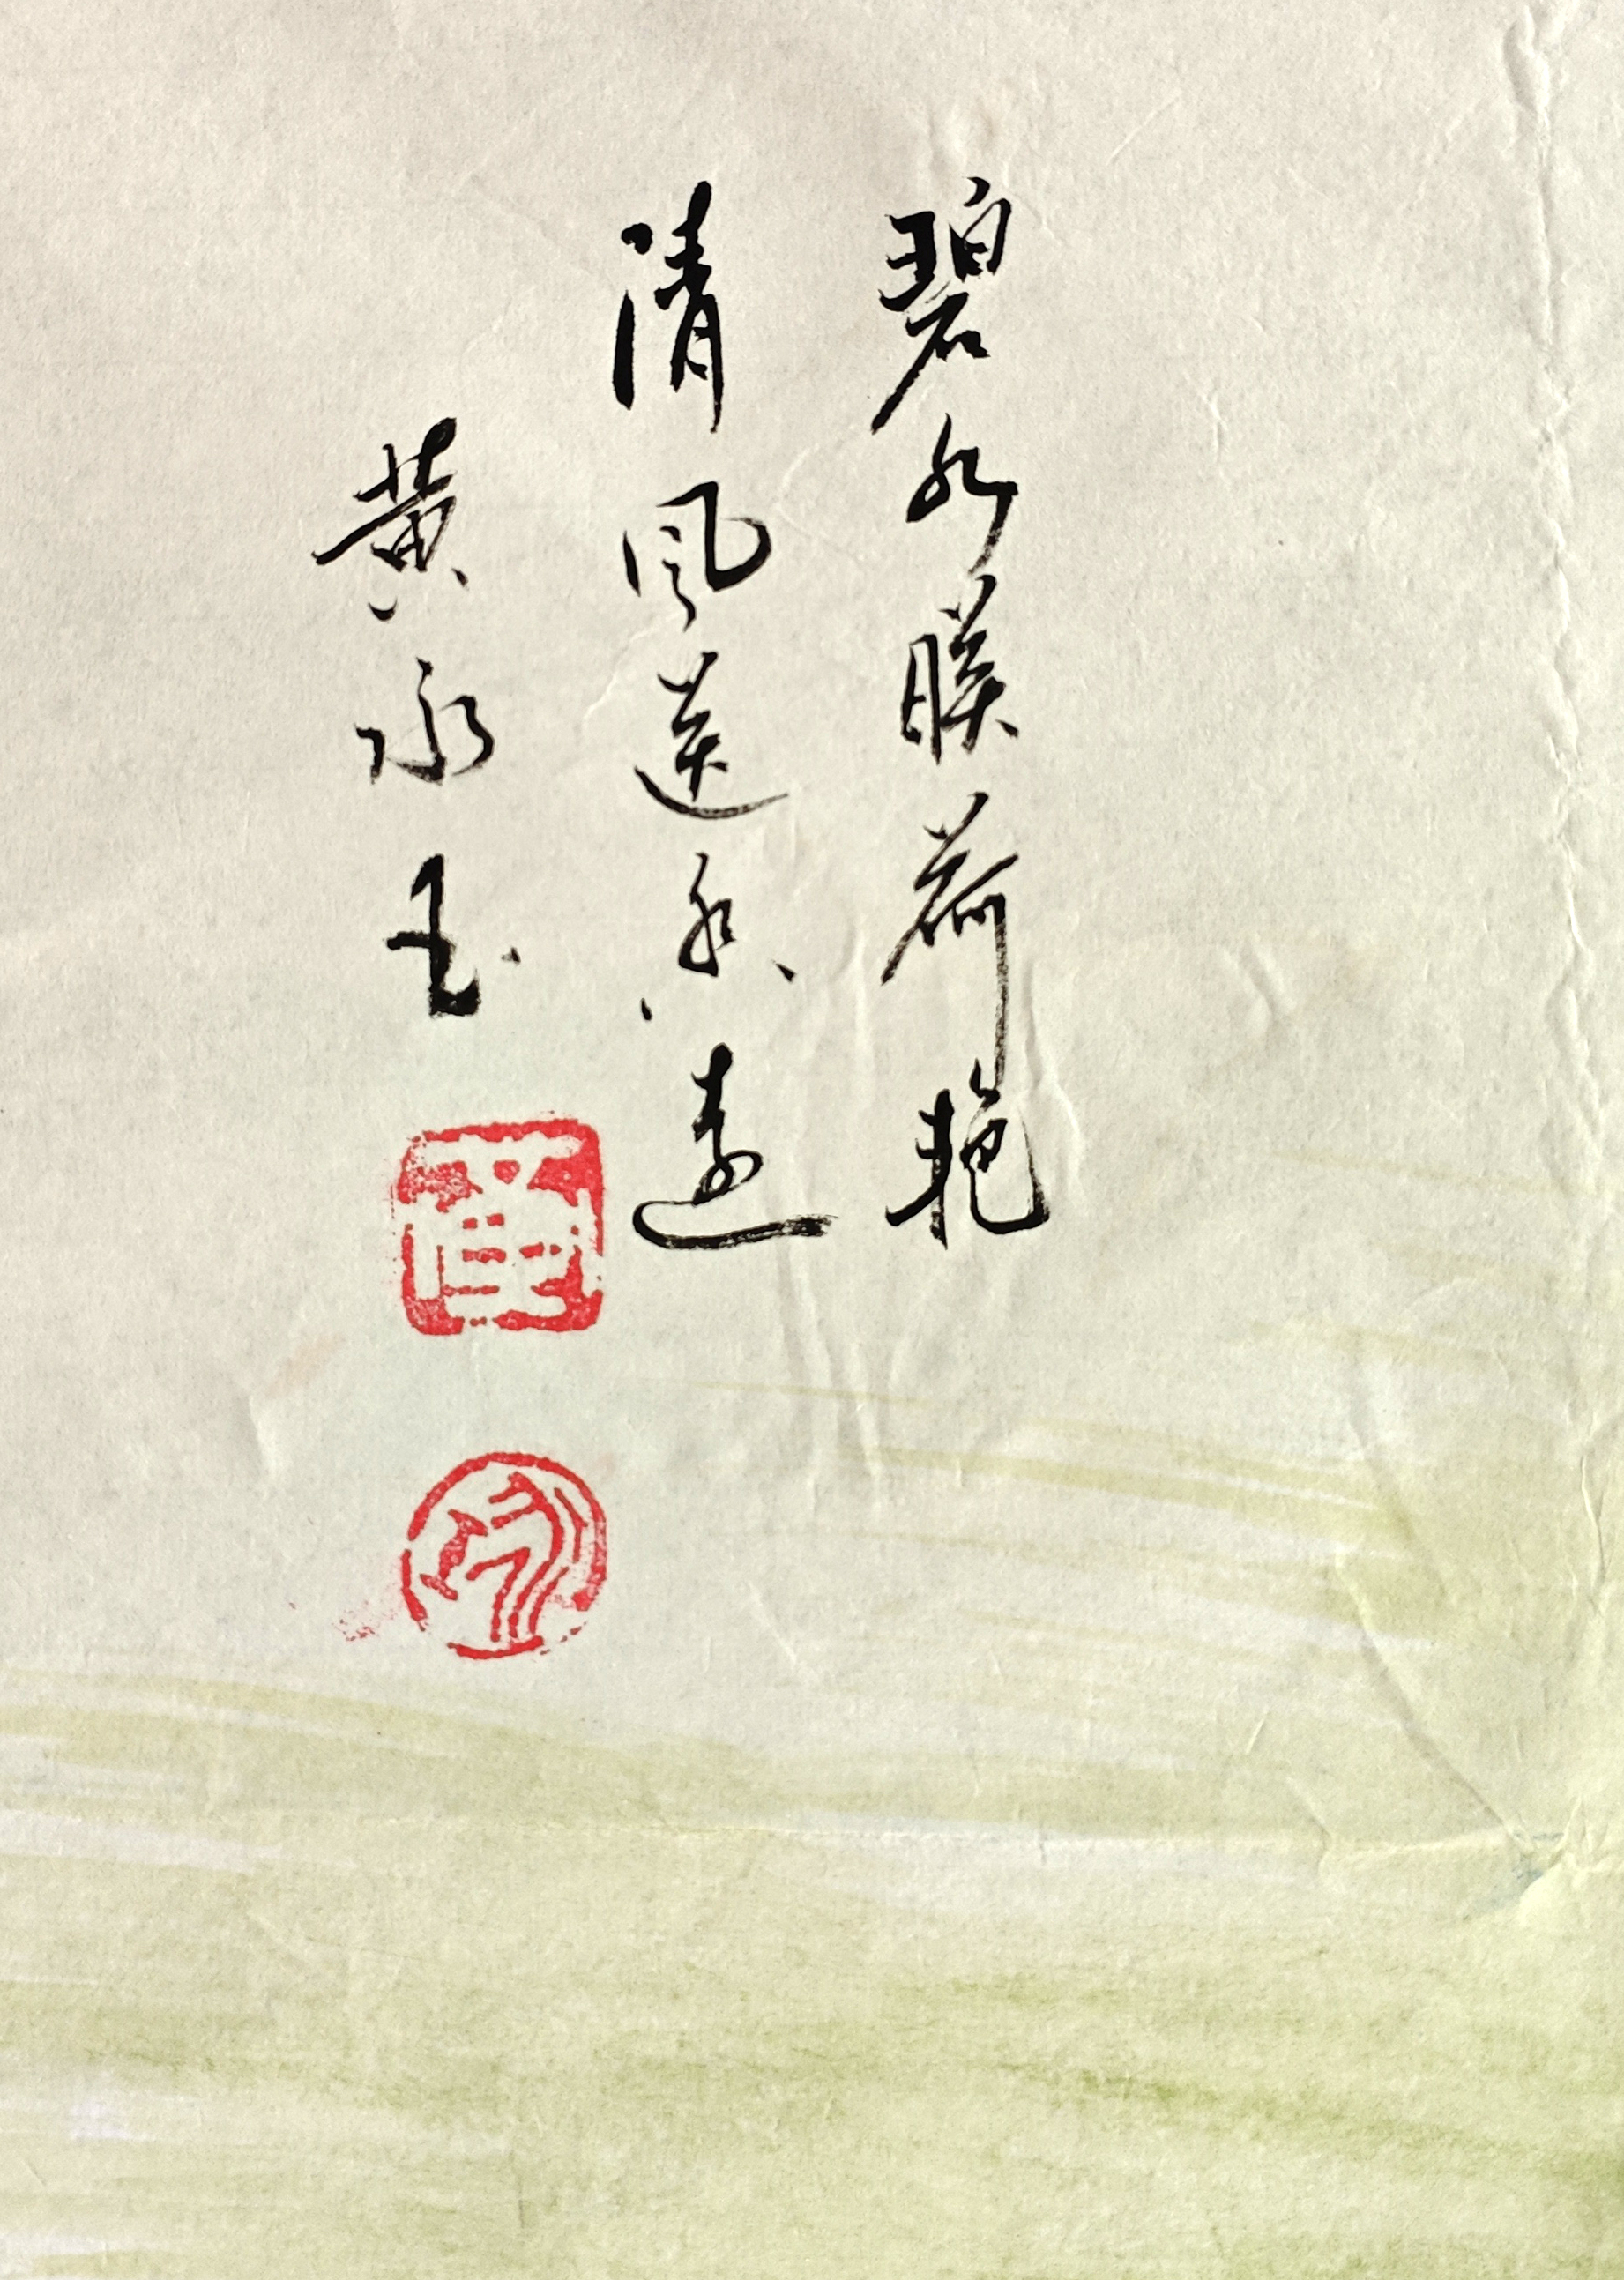 碧水映荷艳
清风送香远
黄永玉